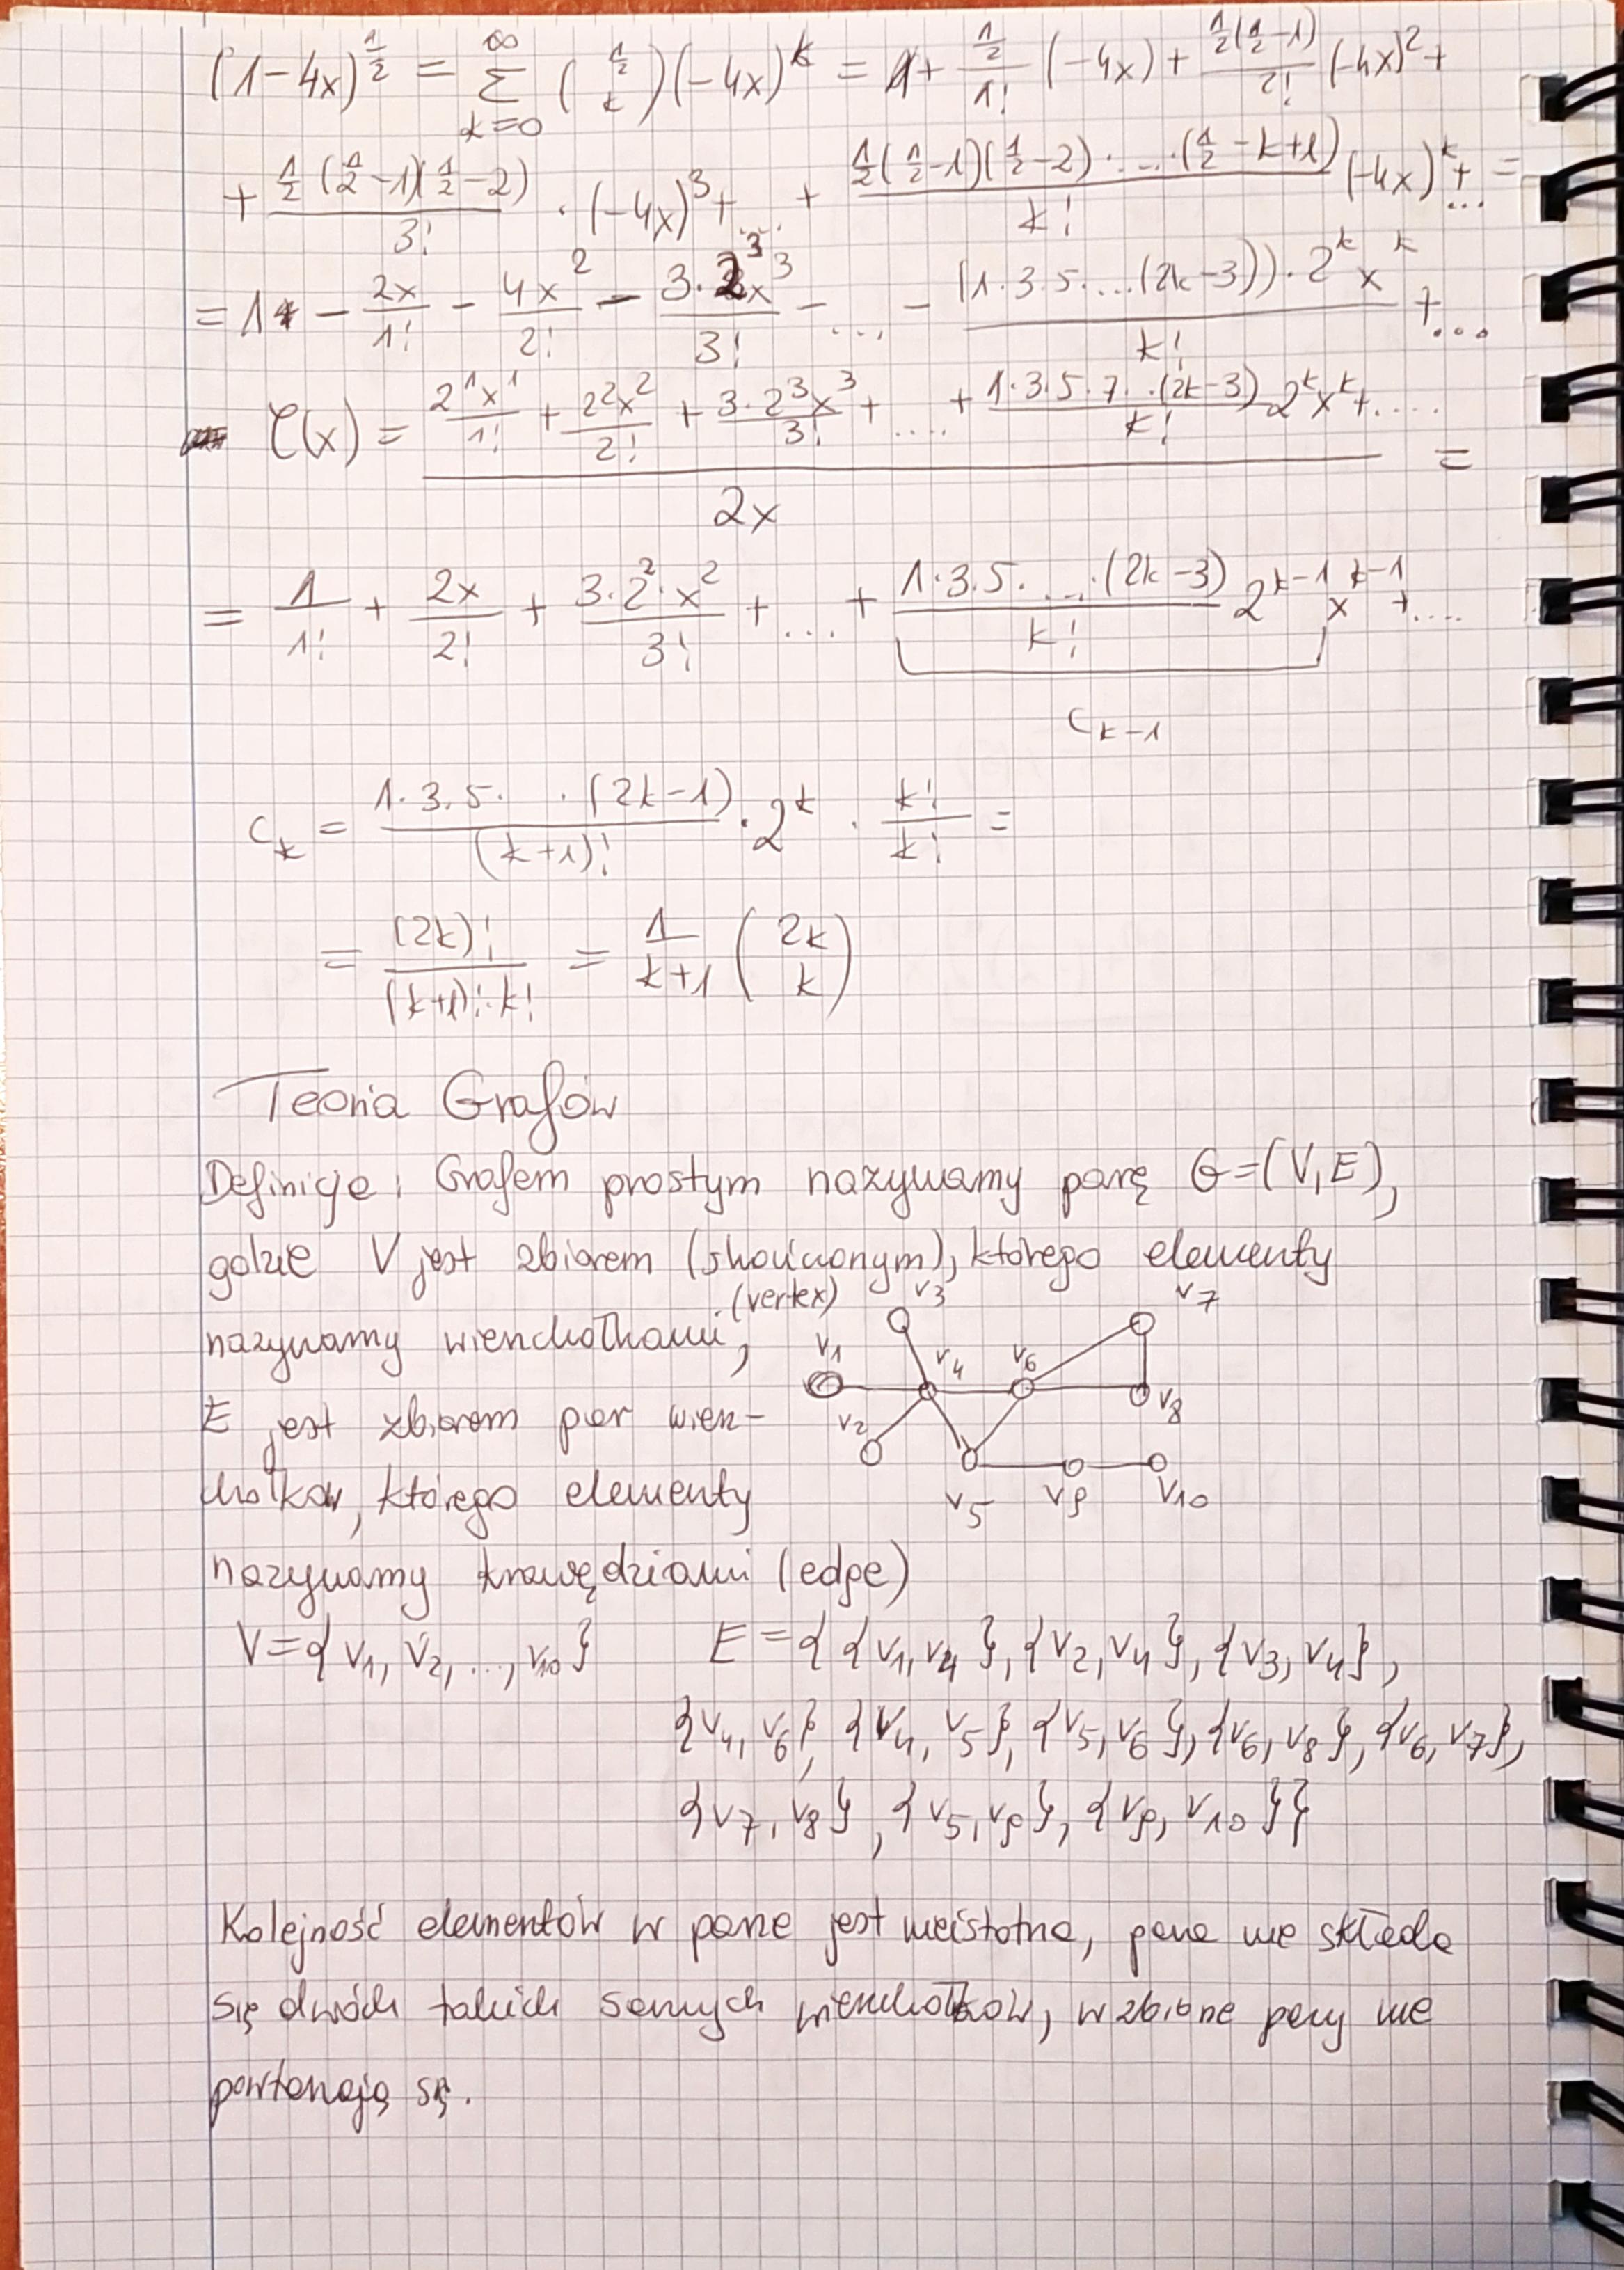 (1-4x)^{1/2} = \sum_{k=0}^{∞} \binom{1/2}{k} (-4x)^k = 1 + \frac{1/2}{1!} (-4x) + \frac{1/2(1/2-1)}{2!} (-4x)^2 +
+ \frac{1/2 (1/2-1)(1/2-2)}{3!} · (-4x)^3 + ... + \frac{1/2(1/2-1)(1/2-2)·...·(1/2-k+1)}{k!} (-4x)^k + ... =
= 1 - \frac{2x}{1!} - \frac{4x^2}{2!} - \frac{3·2^3x^3}{3!} - ... - \frac{(1·3·5·...(2k-3))·2^k x^k}{k!} + ...
C(x) = \frac{\frac{2^1x^1}{1!} + \frac{2^2x^2}{2!} + \frac{3·2^3x^3}{3!} + .... + \frac{1·3·5·7··(2k-3)}{k!} 2^k x^k + ....}{2x} =
= \frac{1}{1!} + \frac{2x}{2!} + \frac{3·2^2·x^2}{3!} + ... + \frac{1·3·5·...·(2k-3)}{k!} 2^{k-1} x^{k-1} + ....
c_{k-1}
c_k = \frac{1·3·5· ·(2k-1)}{(k+1)!} · 2^k · \frac{k!}{k!} =
= \frac{(2k)!}{(k+1)!·k!} = \frac{1}{k+1} \binom{2k}{k}
Teoria Grafów
Definicja: Grafem prostym nazywamy parę G=(V,E),
gdzie V jest zbiorem (skończonym), którego elementy
nazywamy wierzchołkami, (vertex)
E jest zbiorem par wierz-
chołków, którego elementy
nazywamy krawędziami (edge)
v3 v7
v1 v4 v6
v2 v8
v5 v9 v10
V={v1, v2, ..., v10} E={{v1,v4}, {v2,v4}, {v3,v4},
{v4,v6}, {v4,v5}, {v5,v6}, {v6,v8}, {v6,v7},
{v7,v8}, {v5,v9}, {v9,v10}}
Kolejność elementów w parze jest nieistotna, para nie składa
się dwóch takich samych wierzchołków, w zbiorze pary nie
powtarzają się.